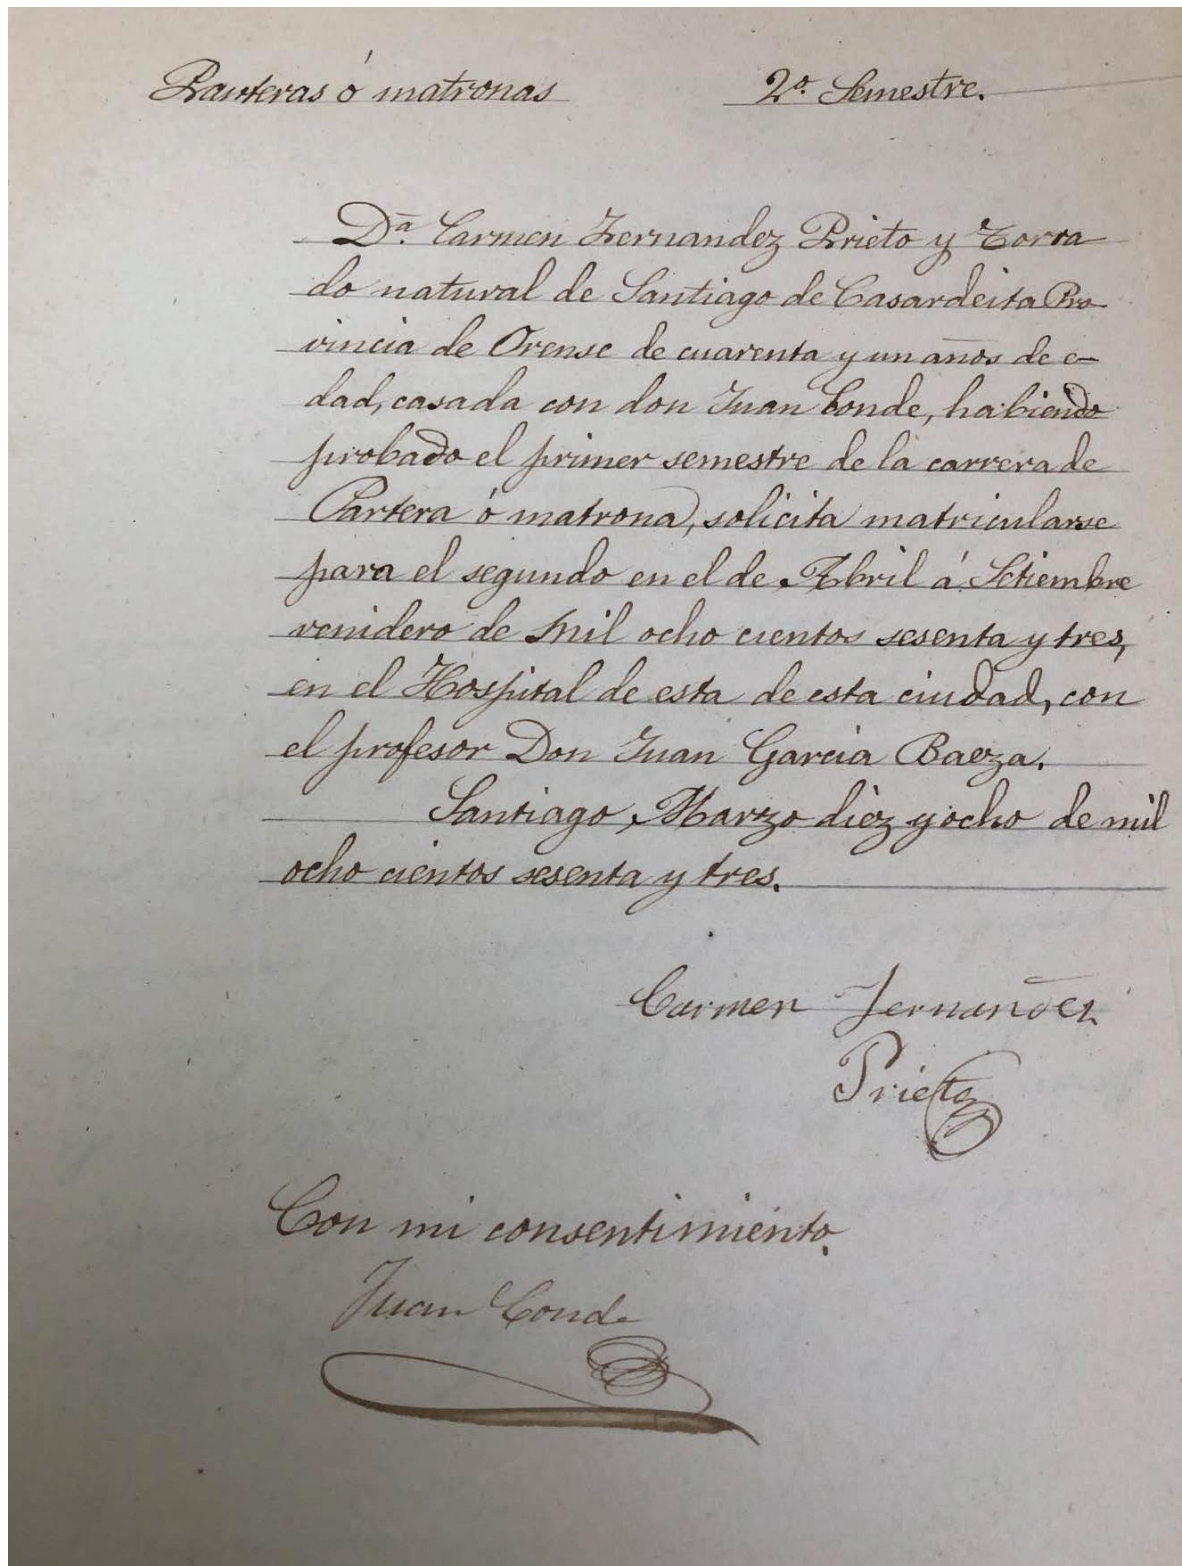 Parteras ó matronas 2º. Semestre.
Dª. Carmen Fernandez Prieto y Torra
do natural de Santiago de Casardeita Pro-
vincia de Orense de cuarenta y un años de e-
dad, casada con don Juan Conde, habiendo
probado el primer semestre de la carrera de
Partera ó matrona, solicita matricularse
para el segundo en el de Abril á Setiembre
venidero de mil ocho cientos sesenta y tres,
en el Hospital de esta de esta ciudad, con
el profesor Don Juan Garcia Baeza.
Santiago, Marzo diez y ocho de mil
ocho cientos sesenta y tres.
Carmen Fernandez
Prieto
Con mi consentimiento.
Juan Conde